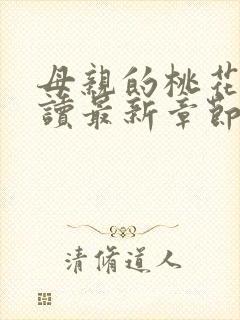 母親的桃花
讀最新章節
清脩道人